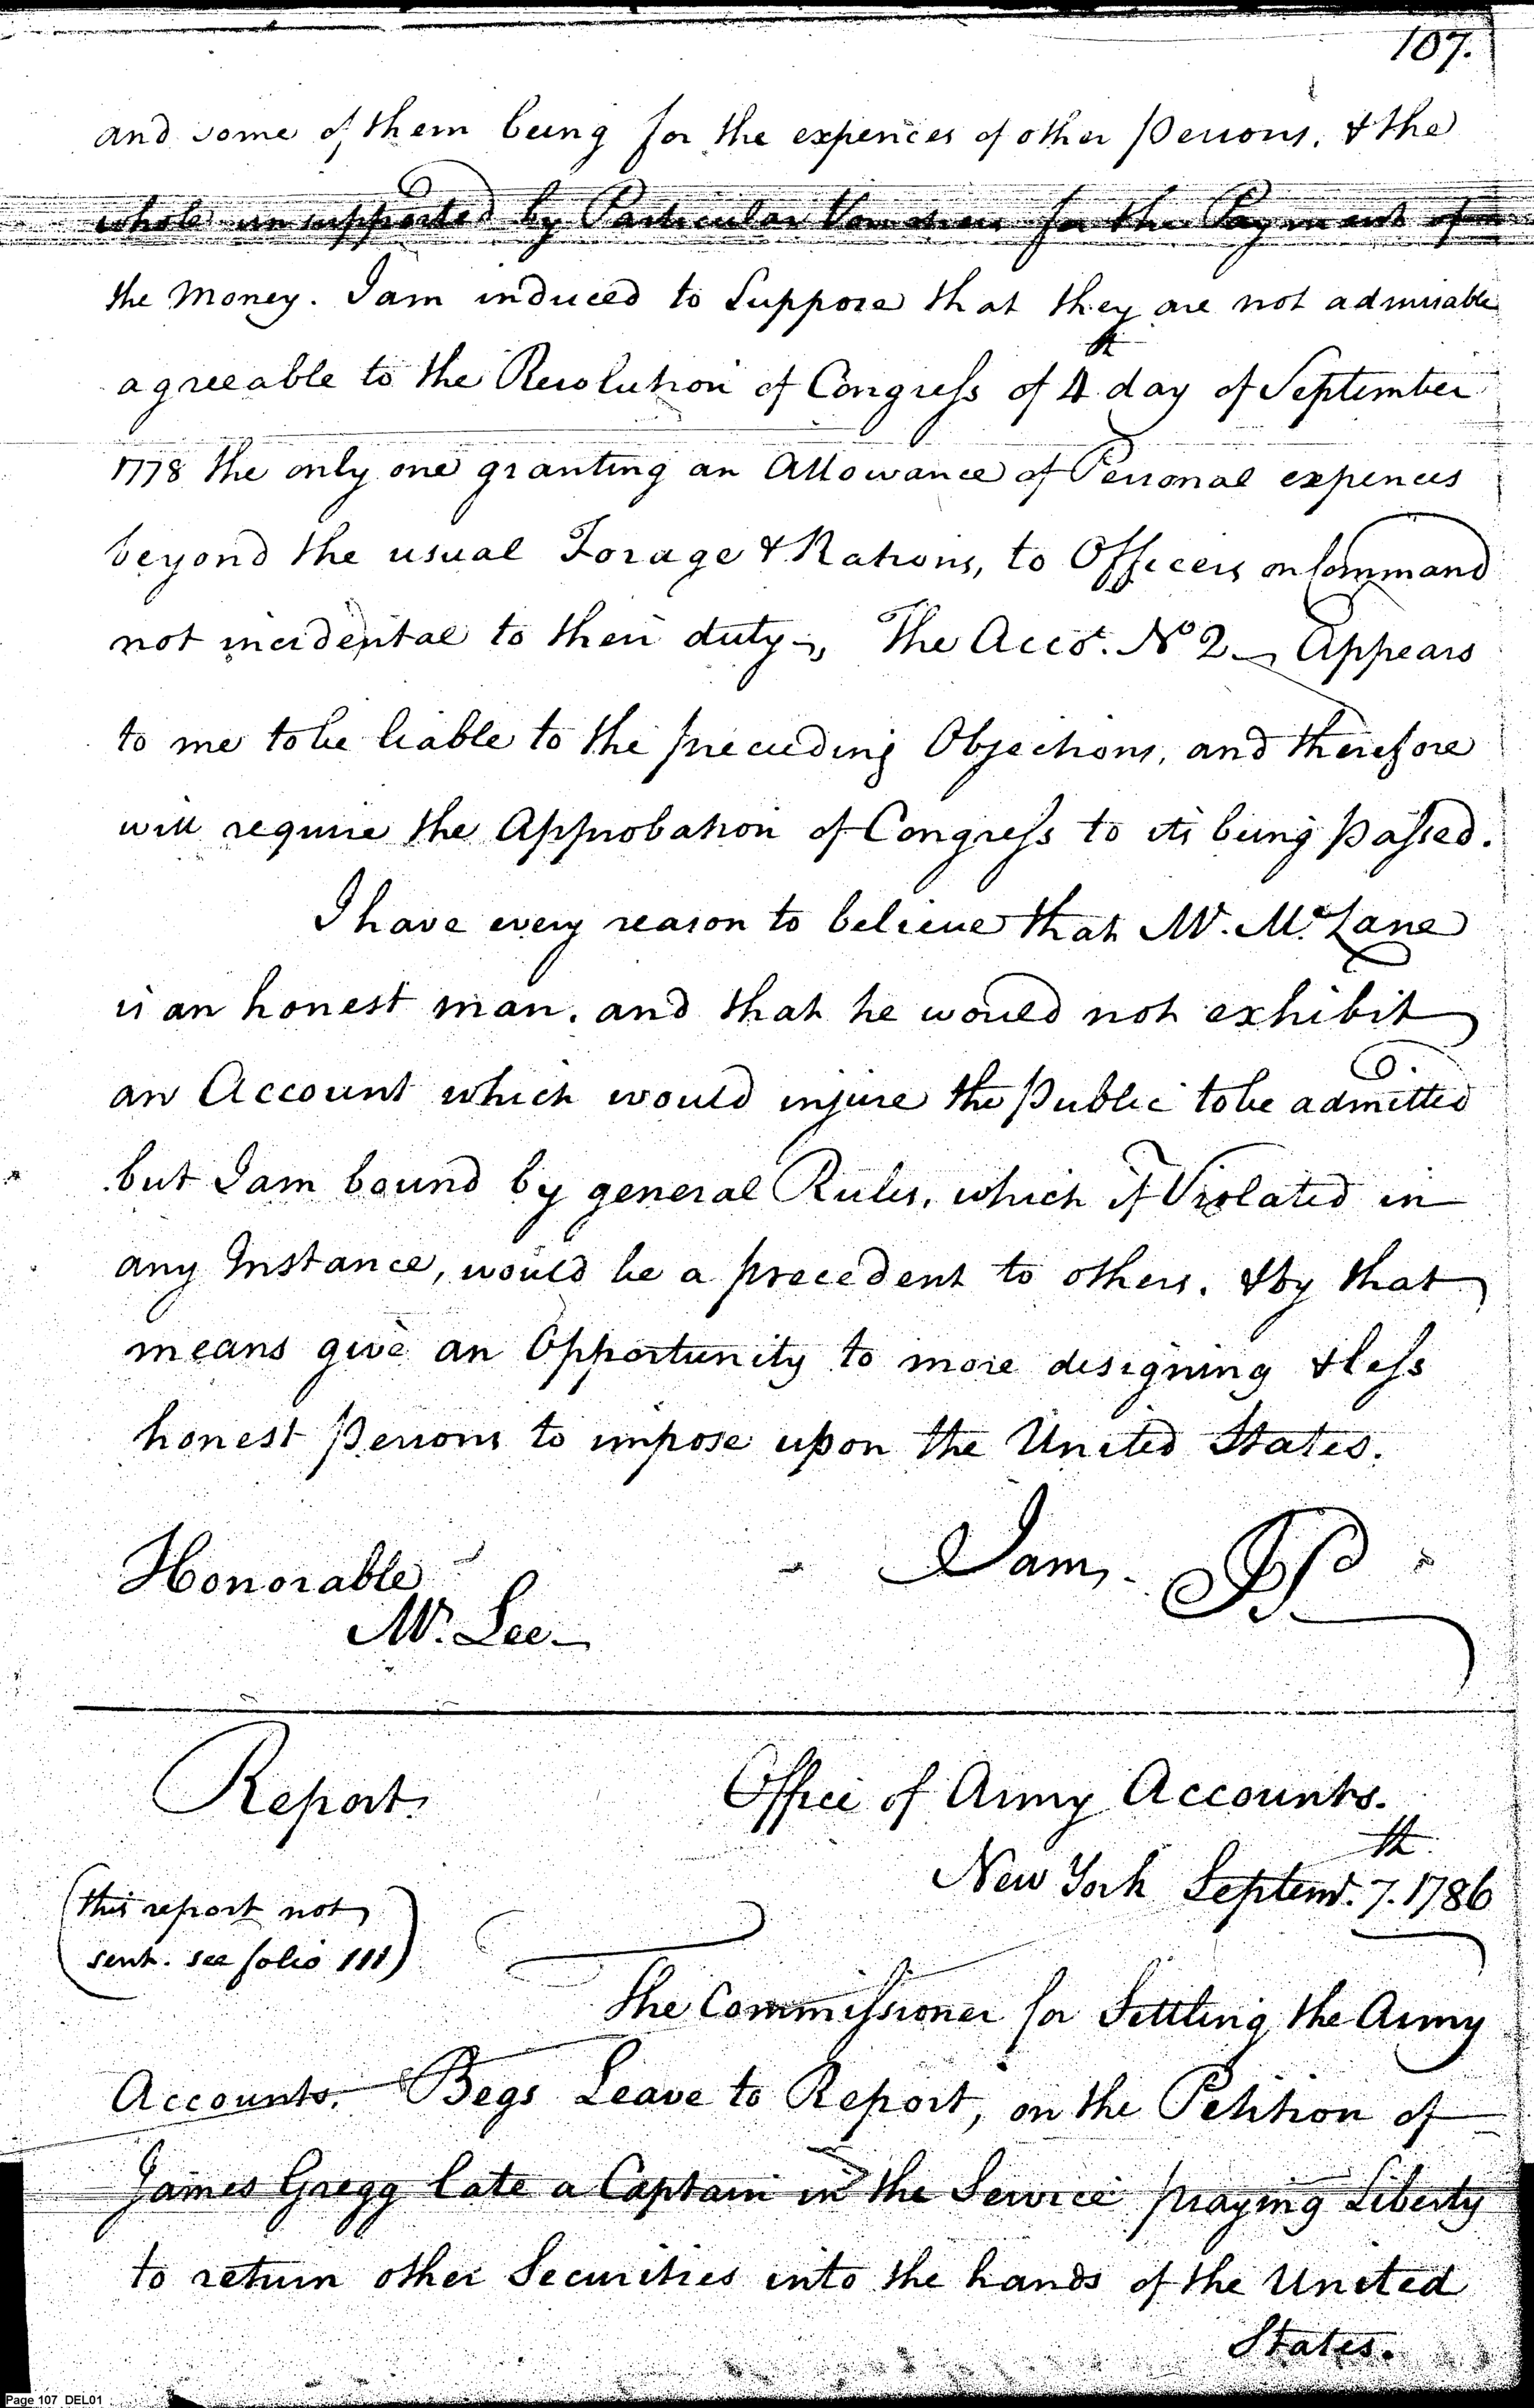 107.
and some of them being for the expences of other Persons. & the
whole unsupported by Particular Vouchers for the Payment of
the Money. I am induced to Suppose that they are not admissable
agreeable to the Resolution of Congress of 4th day of September
1778 the only one granting an Allowance of Personal expences
beyond the usual Forage & Rations, to Officers on Command
not incidental to their duty, The Acco.t No 2 Appears
to me to be liable to the preceeding Objections, and therefore
will require the Approbation of Congress to its being passed.
I have every reason to believe that Mr. McLane
is an honest man. and that he would not exhibit
an Account which would injure the Public to be admitted
but I am bound by general Rules, which if Violated in
any Instance, would be a precedent to others. & by that
means give an Opportunity to more designing & less
honest Persons to impose upon the United States.
I am, JP
Honorable
Mr. Lee
Report.
Office of Army Accounts.
New York Septemr. 7th. 1786
(this report not
sent. see folio 111)
The Commissioner for Settling the Army
Accounts. Begs Leave to Report, on the Petition of
James Gregg late a Captain in the Service praying Liberty
to return other Securities into the hands of the United
States.
Page 107 DEL01